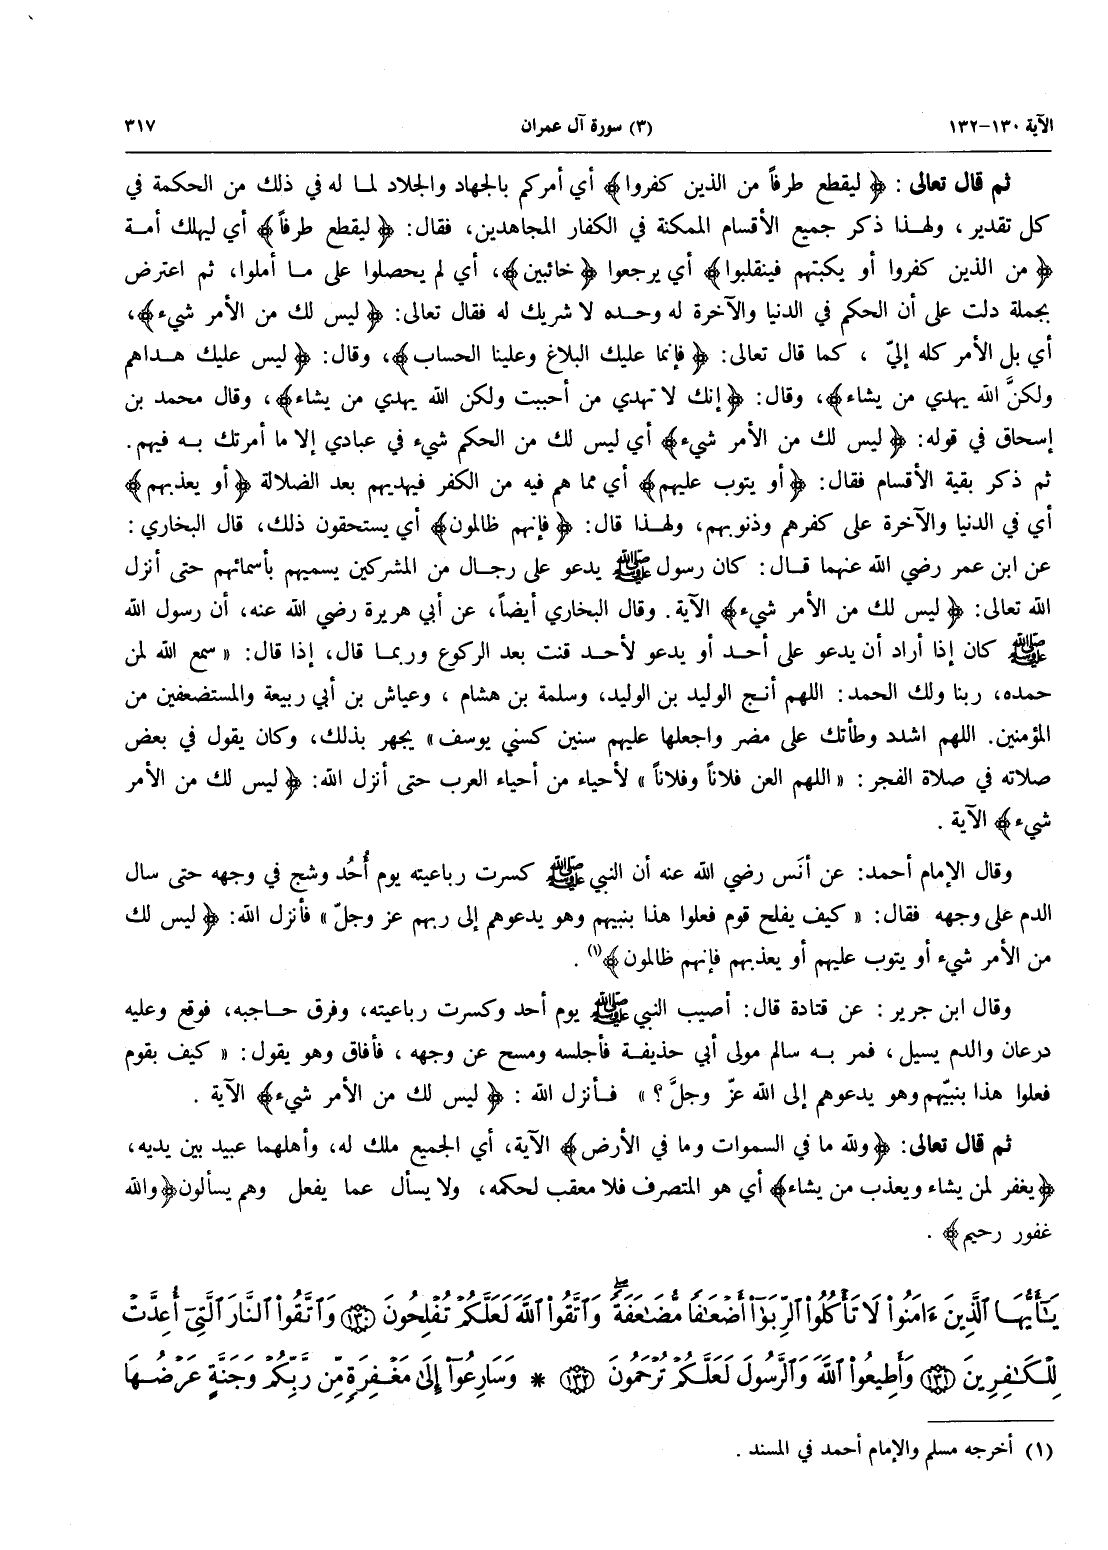 الآية ١٣٠-١٣٢ (٣) سورة آل عمران ٣١٧
ثم قال تعالى : ﴿ ليقطع طرفاً من الذين كفروا﴾ أي أمركم بالجهاد والجلاد لما له في ذلك من الحكمة في
كل تقدير ، ولهذا ذكر جميع الأقسام الممكنة في الكفار المجاهدين، فقال: ﴿ ليقطع طرفاً﴾ أي ليهلك أمة
﴿ من الذين كفروا أو يكبتهم فينقلبوا﴾ أي يرجعوا ﴿ خائبين﴾، أي لم يحصلوا على ما أملوا، ثم اعترض
بجملة دلت على أن الحكم في الدنيا والآخرة له وحده لا شريك له فقال تعالى: ﴿ ليس لك من الأمر شيء﴾،
أي بل الأمر كله إليّ ، كما قال تعالى: ﴿ فإنما عليك البلاغ وعلينا الحساب﴾، وقال: ﴿ ليس عليك هداهم
ولكنَّ الله يهدي من يشاء﴾، وقال: ﴿إنك لا تهدي من أحببت ولكن الله يهدي من يشاء﴾، وقال محمد بن
إسحاق في قوله: ﴿ ليس لك من الأمر شيء﴾ أي ليس لك من الحكم شيء في عبادي إلا ما أمرتك به فيهم.
ثم ذكر بقية الأقسام فقال: ﴿أو يتوب عليهم﴾ أي مما هم فيه من الكفر فيهديهم بعد الضلالة ﴿أو يعذبهم﴾
أي في الدنيا والآخرة على كفرهم وذنوبهم، ولهذا قال: ﴿ فإنهم ظالمون﴾ أي يستحقون ذلك، قال البخاري :
عن ابن عمر رضي الله عنهما قال: كان رسول ﷺ يدعو على رجال من المشركين يسميهم بأسمائهم حتى أنزل
الله تعالى: ﴿ ليس لك من الأمر شيء﴾ الآية. وقال البخاري أيضاً، عن أبي هريرة رضي الله عنه، أن رسول الله
ﷺ كان إذا أراد أن يدعو على أحد أو يدعو لأحد قنت بعد الركوع وربما قال، إذا قال: « سمع الله لمن
حمده، ربنا ولك الحمد: اللهم أنج الوليد بن الوليد، وسلمة بن هشام ، وعياش بن أبي ربيعة والمستضعفين من
المؤمنين. اللهم اشدد وطأتك على مضر واجعلها عليهم سنين كسني يوسف » يجهر بذلك، وكان يقول في بعض
صلاته في صلاة الفجر: « اللهم العن فلاناً وفلاناً » لأحياء من أحياء العرب حتى أنزل الله: ﴿ ليس لك من الأمر
شيء﴾ الآية .
وقال الإمام أحمد: عن أنَس رضي الله عنه أن النبي ﷺ كسرت رباعيته يوم أُحُد وشج في وجهه حتى سال
الدم على وجهه فقال: « كيف يفلح قوم فعلوا هذا بنبيهم وهو يدعوهم إلى ربهم عز وجلّ » فأنزل الله: ﴿ ليس لك
من الأمر شيء أو يتوب عليهم أو يعذبهم فإنهم ظالمون﴾(١) .
وقال ابن جرير : عن قتادة قال: أصيب النبي ﷺ يوم أحد وكسرت رباعيته، وفرق حاجبه، فوقع وعليه
درعان والدم يسيل ، فمر به سالم مولى أبي حذيفة فأجلسه ومسح عن وجهه ، فأفاق وهو يقول: « كيف بقوم
فعلوا هذا بنبيّهم وهو يدعوهم إلى الله عزّ وجلَّ ؟ » فأنزل الله : ﴿ ليس لك من الأمر شيء﴾ الآية .
ثم قال تعالى: ﴿ولله ما في السموات وما في الأرض﴾ الآية، أي الجميع ملك له، وأهلهما عبيد بين يديه،
﴿يغفر لمن يشاء ويعذب من يشاء﴾ أي هو المتصرف فلا معقب لحكمه، ولا يسأل عما يفعل وهم يسألون﴿والله
غفور رحيم﴾ .
يَـٰٓأَيُّهَا ٱلَّذِينَ ءَامَنُوا۟ لَا تَأْكُلُوا۟ ٱلرِّبَوٰٓا۟ أَضْعَـٰفًا مُّضَـٰعَفَةً ۖ وَٱتَّقُوا۟ ٱللَّهَ لَعَلَّكُمْ تُفْلِحُونَ ﴿١٣٠﴾ وَٱتَّقُوا۟ ٱلنَّارَ ٱلَّتِىٓ أُعِدَّتْ
لِلْكَـٰفِرِينَ ﴿١٣١﴾ وَأَطِيعُوا۟ ٱللَّهَ وَٱلرَّسُولَ لَعَلَّكُمْ تُرْحَمُونَ ﴿١٣٢﴾ * وَسَارِعُوٓا۟ إِلَىٰ مَغْفِرَةٍ مِّن رَّبِّكُمْ وَجَنَّةٍ عَرْضُهَا
(١) أخرجه مسلم والإمام أحمد في المسند .